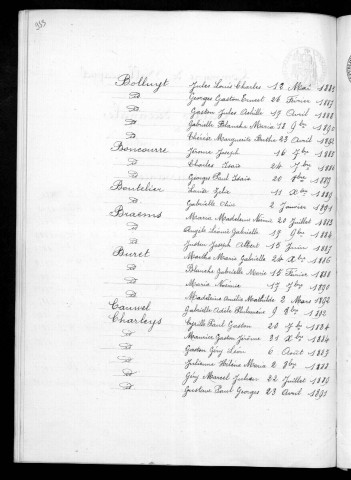 353
Bolluyt Jules Louis Charles 12 Mai 1885
Georges Gaston Ernest 26 Février 1887
Gaston Jules Achille 17 Avril 1888
Gabrielle Blanche Maria 18 9bre 1890
Thérèse Marguerite Berthe 23 Avril 1892
Boncourre Jérome Joseph 16 7bre 1883
Charles Isaïe 24 7bre 1886
Georges Paul Isaïe 20 8bre 1889
Boutelier Louis Zélie 11 Xbre 1889
Gabrielle Clair 2 Janvier 1891
Braems Maria Madeleine Noémie 20 Juillet 1883
Angèle Léonie Gabrielle 19 9bre 1884
Justin Joseph Albert 15 Juin 1887
Buret Martha Marie Gabrielle 24 Xbre 1886
Blanche Gabrielle Marie 15 Février 1888
Maria Noémie 17 7bre 1890
Madeleine Amélie Mathilde 2 Mars 1892
Cauwel Gabrielle Adèle Philomène 9 8bre 1892
Charleys Cyrille Paul Gaston 20 7bre 1884
Maurice Gaston Jérôme 31 Xbre 1884
Gaston Géry Léon 6 Août 1887
Julienne Hélène Maria 2 8bre 1888
Géry Marcel Julien 22 Juillet 1889
Gustave Paul Georges 23 Avril 1891